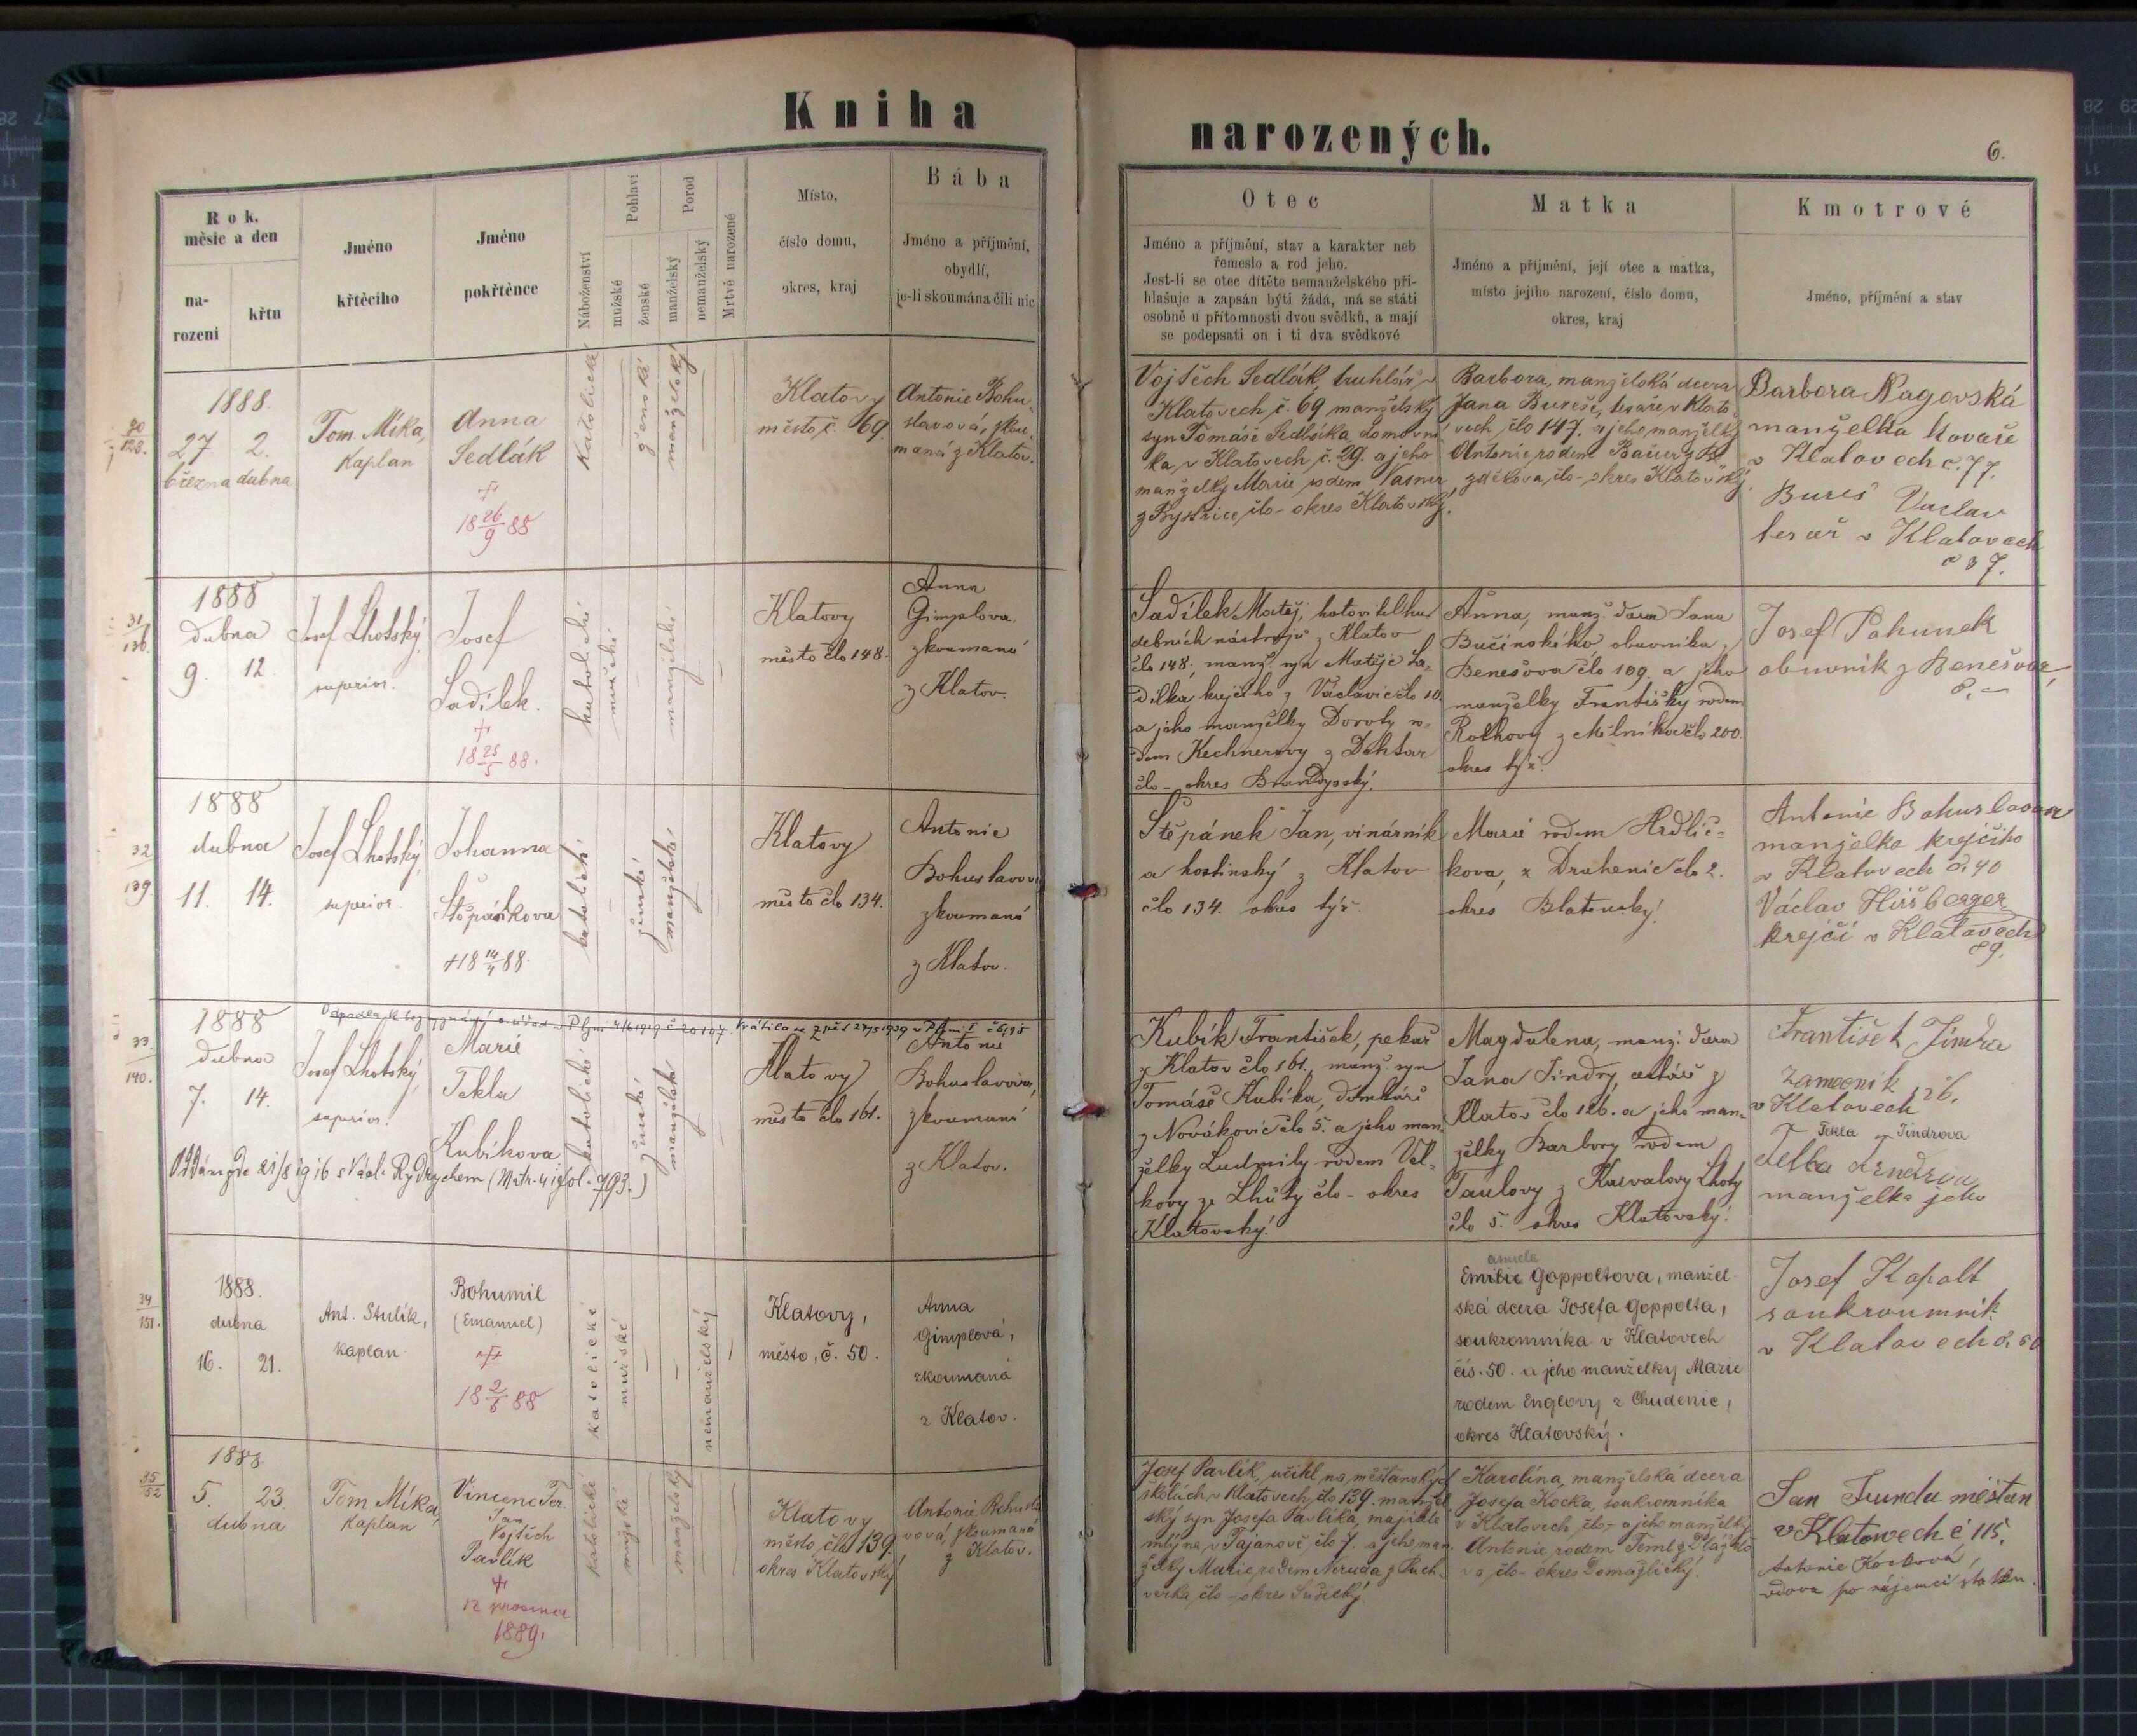 Kniha
narozených.
6.
Rok,
měsíc a den
na-
rozeni
křtu
Jméno
křtěcího
Jméno
pokřtěnce
Náboženství
Pohlaví
mužské
ženské
Porod
manželský
nemanželský
Mrtvě narozené
Místo,
číslo domu,
okres, kraj
Bába
Jméno a příjmění,
obydlí,
je-li skoumána čili nic
Otec
Jméno a příjmění, stav a karakter neb
řemeslo a rod jeho.
Jest-li se otec dítěte nemanželského při-
hlašuje a zapsán býti žádá, má se státi
osobně u přítomnosti dvou svědků, a mají
se podepsati on i ti dva svědkové
Matka
Jméno a příjmění, její otec a matka,
místo jejího narození, číslo domu,
okres, kraj
Kmotrové
Jméno, příjmění a stav
1888.
27 2.
března dubna
Tom. Míka,
Kaplan
Anna
Sedlák
18 26/9 88
Katolické
ženské
manželský
Klatovy
město č. 69
Antonie Bohu-
slavová, skou-
maná z Klatov.
Vojtěch Sedlák, truhlář v
Klatovech č. 69 manželský
syn Tomáše Sedláka, domovní-
ka v Klatovech č. 29. a jeho
manželky Marie rodem Vasner
z Bystřice, člo - okres Klatovský.
Barbora, manželská dcera
Jana Bureše, tesaře v Klato-
vech člo 147. a jeho manželky
Antonie rodem
člo - okres Klatovský.
Barbora Nagovská
manželka kovaře
v Klatovech č. 77.
Bureš Vaclav
tesař v Klatovech
č 37.
31/136.
1888
dubna
9. 12.
Josef Lhotský,
superior.
Josef
Sadílek.
18 25/5 88.
katolické
mužské
manželské
Klatovy
město člo 148.
Anna
Gimplova
zkoumaná
z Klatov.
Sadílek Matěj, hotovitel hu-
debních nástrojů z Klatov
člo 148, manž. syn Matěje Sa-
dílka, krejčího z Václavic člo 10.
a jeho manželky Doroty ro-
dem Kechnerovy z Dehtar
člo - okres Brandýsský.
Anna, manž. dcera Jana
Bučinského, obuvníka z
Benešova člo 109. a jeho
manželky Františky rodem
Rothovy z Mělníka člo 200.
okres týž.
Josef Pahunek
obuvník z Benešova,
č. -
32
139
1888
dubna
11. 14.
Josef Lhotský,
superior.
Johanna
Štěpánkova
+18 14/4 88.
katolické
ženské
manželské
Klatovy
město člo 134.
Antonie
Bohuslavova
zkoumaná
z Klatov.
Štěpánek Jan, vinárník
a hostinský z Klatov
člo 134. okres týž.
Marie rodem Hrdlič-
kova, z Drahenic člo 2.
okres Blatenský.
Antonie Bohuslavova
manželka krejčího
v Klatovech č. 40
Václav Hiršberger
krejčí v Klatovech
89.
33
140.
1888
dubna
7. 14.
Josef Lhotský,
superior.
Marie
Tekla
Kubíkova
katolické
ženské
manželské
Klatovy
město člo 161.
Antonie
Bohuslavova,
zkoumaná
z Klatov.
Kubík František, pekař
z Klatov člo 161., manž. syn
Tomáše Kubíka, domkáře
z Novákovic člo 5. a jeho man-
želky Ludmily rodem Vel-
kovy ze Lhůty člo - okres
Klatovský.
Magdalena, manž. dcera
Jana Jindry, z
Klatov člo 126. a jeho man-
želky Barbory rodem
Taulovy z Kurvalovy Lhoty
člo 5. okres Klatovský.
František Jindra
zamečník
v Klatovech 126.
Tekla Jindrova
Tekla Jindrova
manželka jeho
34
151.
1888.
dubna
16. 21.
Ant. Stulík,
kaplan.
Bohumil
(Emanuel)
18 2/5 88
katolické
mužské
nemanželský
Klatovy,
město, č. 50.
Anna
Gimplová,
zkoumaná
z Klatov.
Emilie Goppoltova, manžel-
ská dcera Josefa Goppolta,
soukromníka v Klatovech
čís. 50. a jeho manželky Marie
rodem Englovy z Chudenic,
okres Klatovský.
Josef Kopolt
soukroumník
v Klatovech č. 50
35
52
1888.
5. 23.
dubna
Tom. Míka,
Kaplan
Vincenc Fer.
Jan
Vojtěch
Pavlík
12 prosince
1889.
katolické
mužské
manželský
Klatovy
město, čla 139.
okres Klatovský
Antonie Bohusla-
vová, skoumaná
z Klatov.
Josef Pavlík, učitel na měšťanských
školách v Klatovech, čla 139. manžel-
ský syn Josefa Pavlíka, majitele
mlýna v Tajanově, čla 7. a jeho man-
želky Marie rodem Neruda z Puch-
verka, čla - okres Sušický
Karolina, manželská dcera
Josefa Kocka, soukromníka
v Klatovech, čla - a jeho manželky
Antonie, rodem Teml
čla - okres Domažlický.
Jan Funda měštan
v Klatovech č 115.
Antonie Kocková,
vdova po nájemci statku.